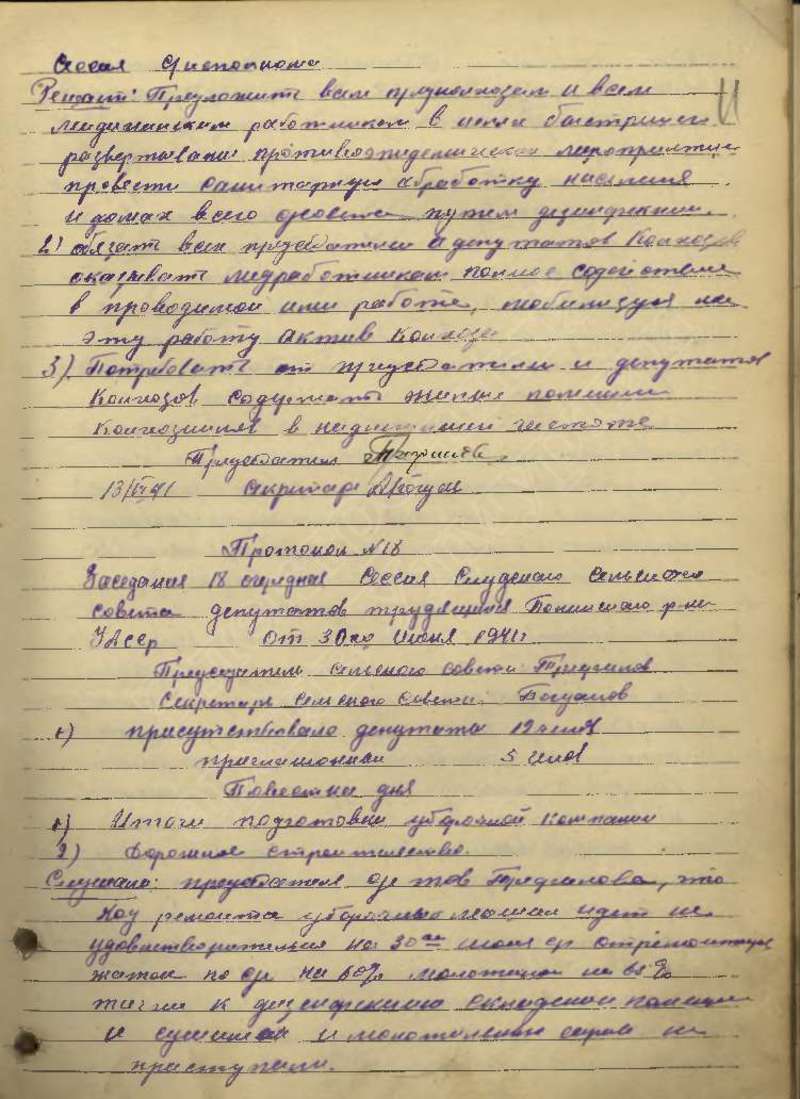 Сессия Исполкома
Решает: Предложить всем предколхозам и всем
медицинским работникам в целях быстрейшего
развертывание противоэпидемических мероприятий
провести санитарную обработку населения
и домах всего с/совета путем дезинфекции.
2) обязать всех председателей и депутатов Колхозов
оказывать медработникам полное содействие
в проводимой ими работе, мобилизуя на
эту работу актив колхоза
3) Потребовать от председателей и депутатов
Колхозов содержать жилые помещения
Колхозников в надлежащей чистоте
Председатель
13/VI 41 секретарь
Протокол №18
Заседания 18 очередная Сессия Слудского сельского
совета депутатов трудящихся Понинского р-на
УАССР от 30го Июня 1941г
Председатель сельского совета Трефилов
Секретарь сельского совета: Богданов
1) присутствовало депутата 12 челов
приглашонных 5 челов
Повестка дня
1) Итоги подготовки уборочной компании
2) Дорожное строительство.
Слушали: председателя с/с тов Трефилова, что
ход ремонта уборочных машин идет не
удовлетворительно на 30ое июня с/г отремонтиров
жаток по с/с на 60% молотилок на %
также к дезинфекции складских помещен
и сушилок и молотильных сараев не
преступали.